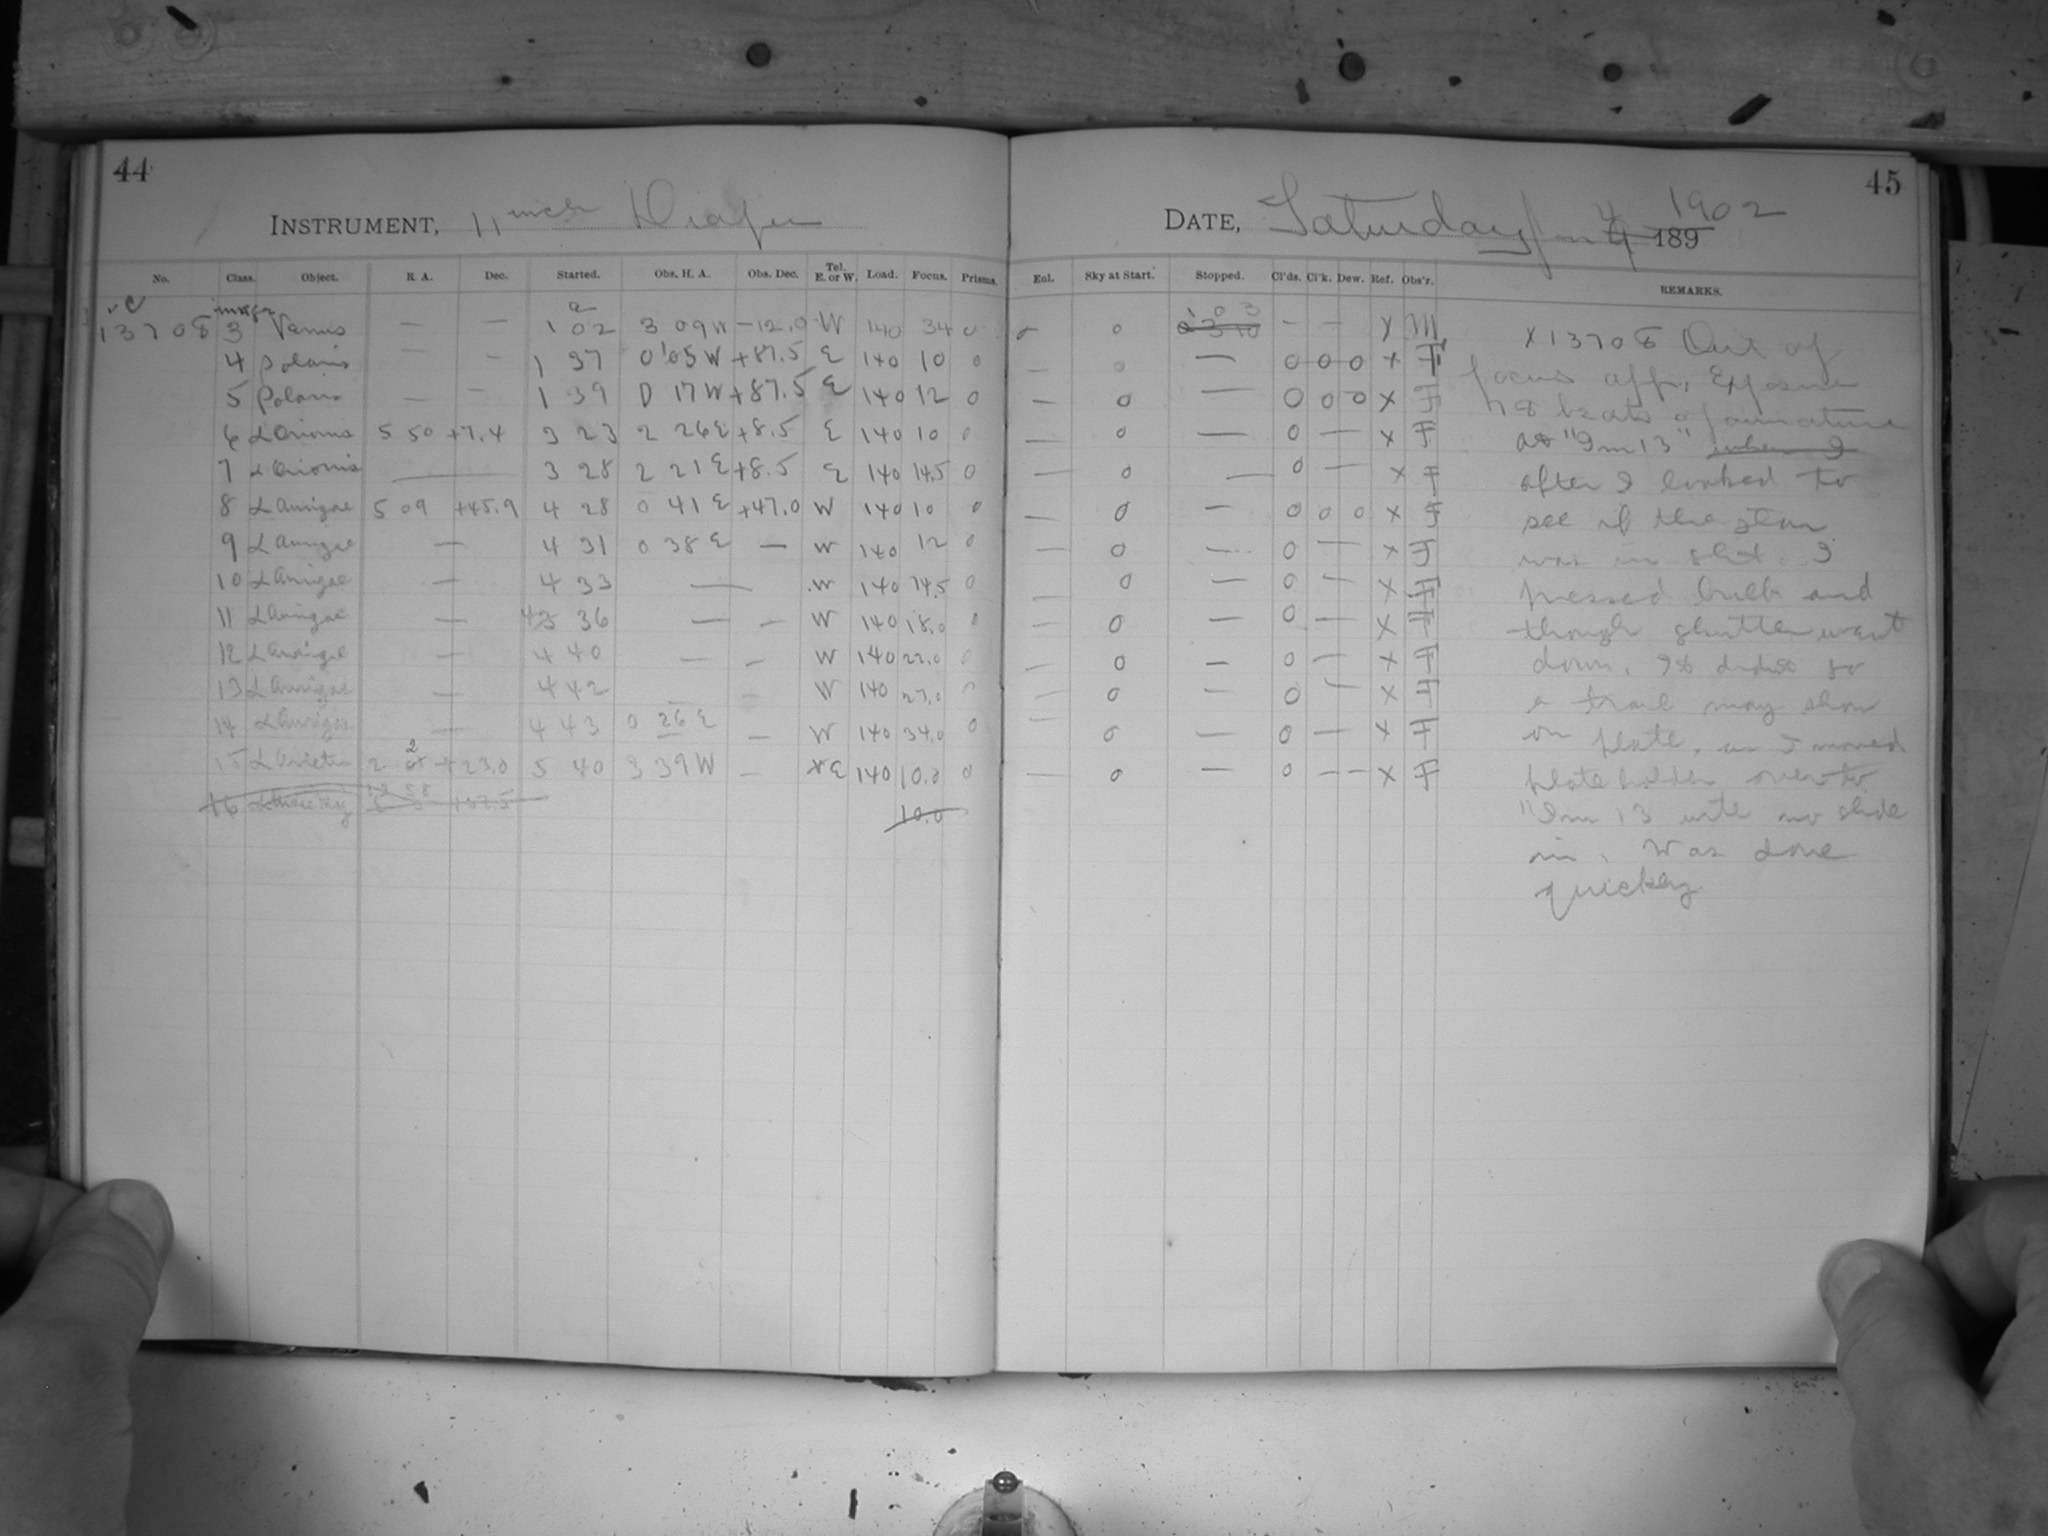 44
INSTRUMENT, 11 inch Draper
No. Class. Object. R. A. Dec. Started. Obs. H. A. Obs. Dec. Tel. E. or W. Load. Focus. Prisms.
13708 3 Venus — — 1 02 3 09 W -12.0 W 140 34 0
4 Polaris — — 1 37 0 05 W +87.5 E 140 10 0
5 Polaris — — 1 39 0 17 W +87.5 E 140 12 0
6 α Orionis 5 50 +7.4 3 23 2 26 E +8.5 E 140 10 0
7 α Orionis — 3 28 2 21 E +8.5 E 140 14.5 0
8 α Aurigae 5 09 +45.9 4 28 0 41 E +47.0 W 140 10 0
9 α Aurigae — 4 31 0 38 E — W 140 12 0
10 α Aurigae — 4 33 — W 140 14.5 0
11 α Aurigae — 4 36 — — W 140 18.0 0
12 α Aurigae — 4 40 — — W 140 22.0 0
13 α Aurigae — 4 42 — W 140 27.0 0
14 α Aurigae — 4 43 0 26 E — W 140 34.0 0
15 α Arietis 2 2 +23.0 5 40 3 39 W — E 140 10.0 0
16
10.0
45
DATE, Saturday Jan 4 1902
189
Enl. Sky at Start. Stopped. Cl'ds. Cl'k. Dew. Ref. Obs'r. REMARKS.
0 1 03 — — x M
— 0 — 0 0 0 x F
— 0 — 0 0 0 x F
— 0 — 0 — x F
— 0 — 0 — x F
— 0 — 0 0 0 x F
— 0 — 0 — x F
— 0 — 0 — x F
— 0 — 0 — x F
— 0 — 0 — x F
— 0 — 0 — x F
— 0 — 0 — x F
— 0 — 0 — — x F
x 13708 Out of
focus app. Exposure
beats of armature
at "9m 13" when I
after I looked to
see if the star
was in slit. I
pressed bulb and
though shutter went
down, it didn't so
a trail may show
on plate, as I moved
plate holder over to
"9m 13 with no slide
in. Was done
quickly